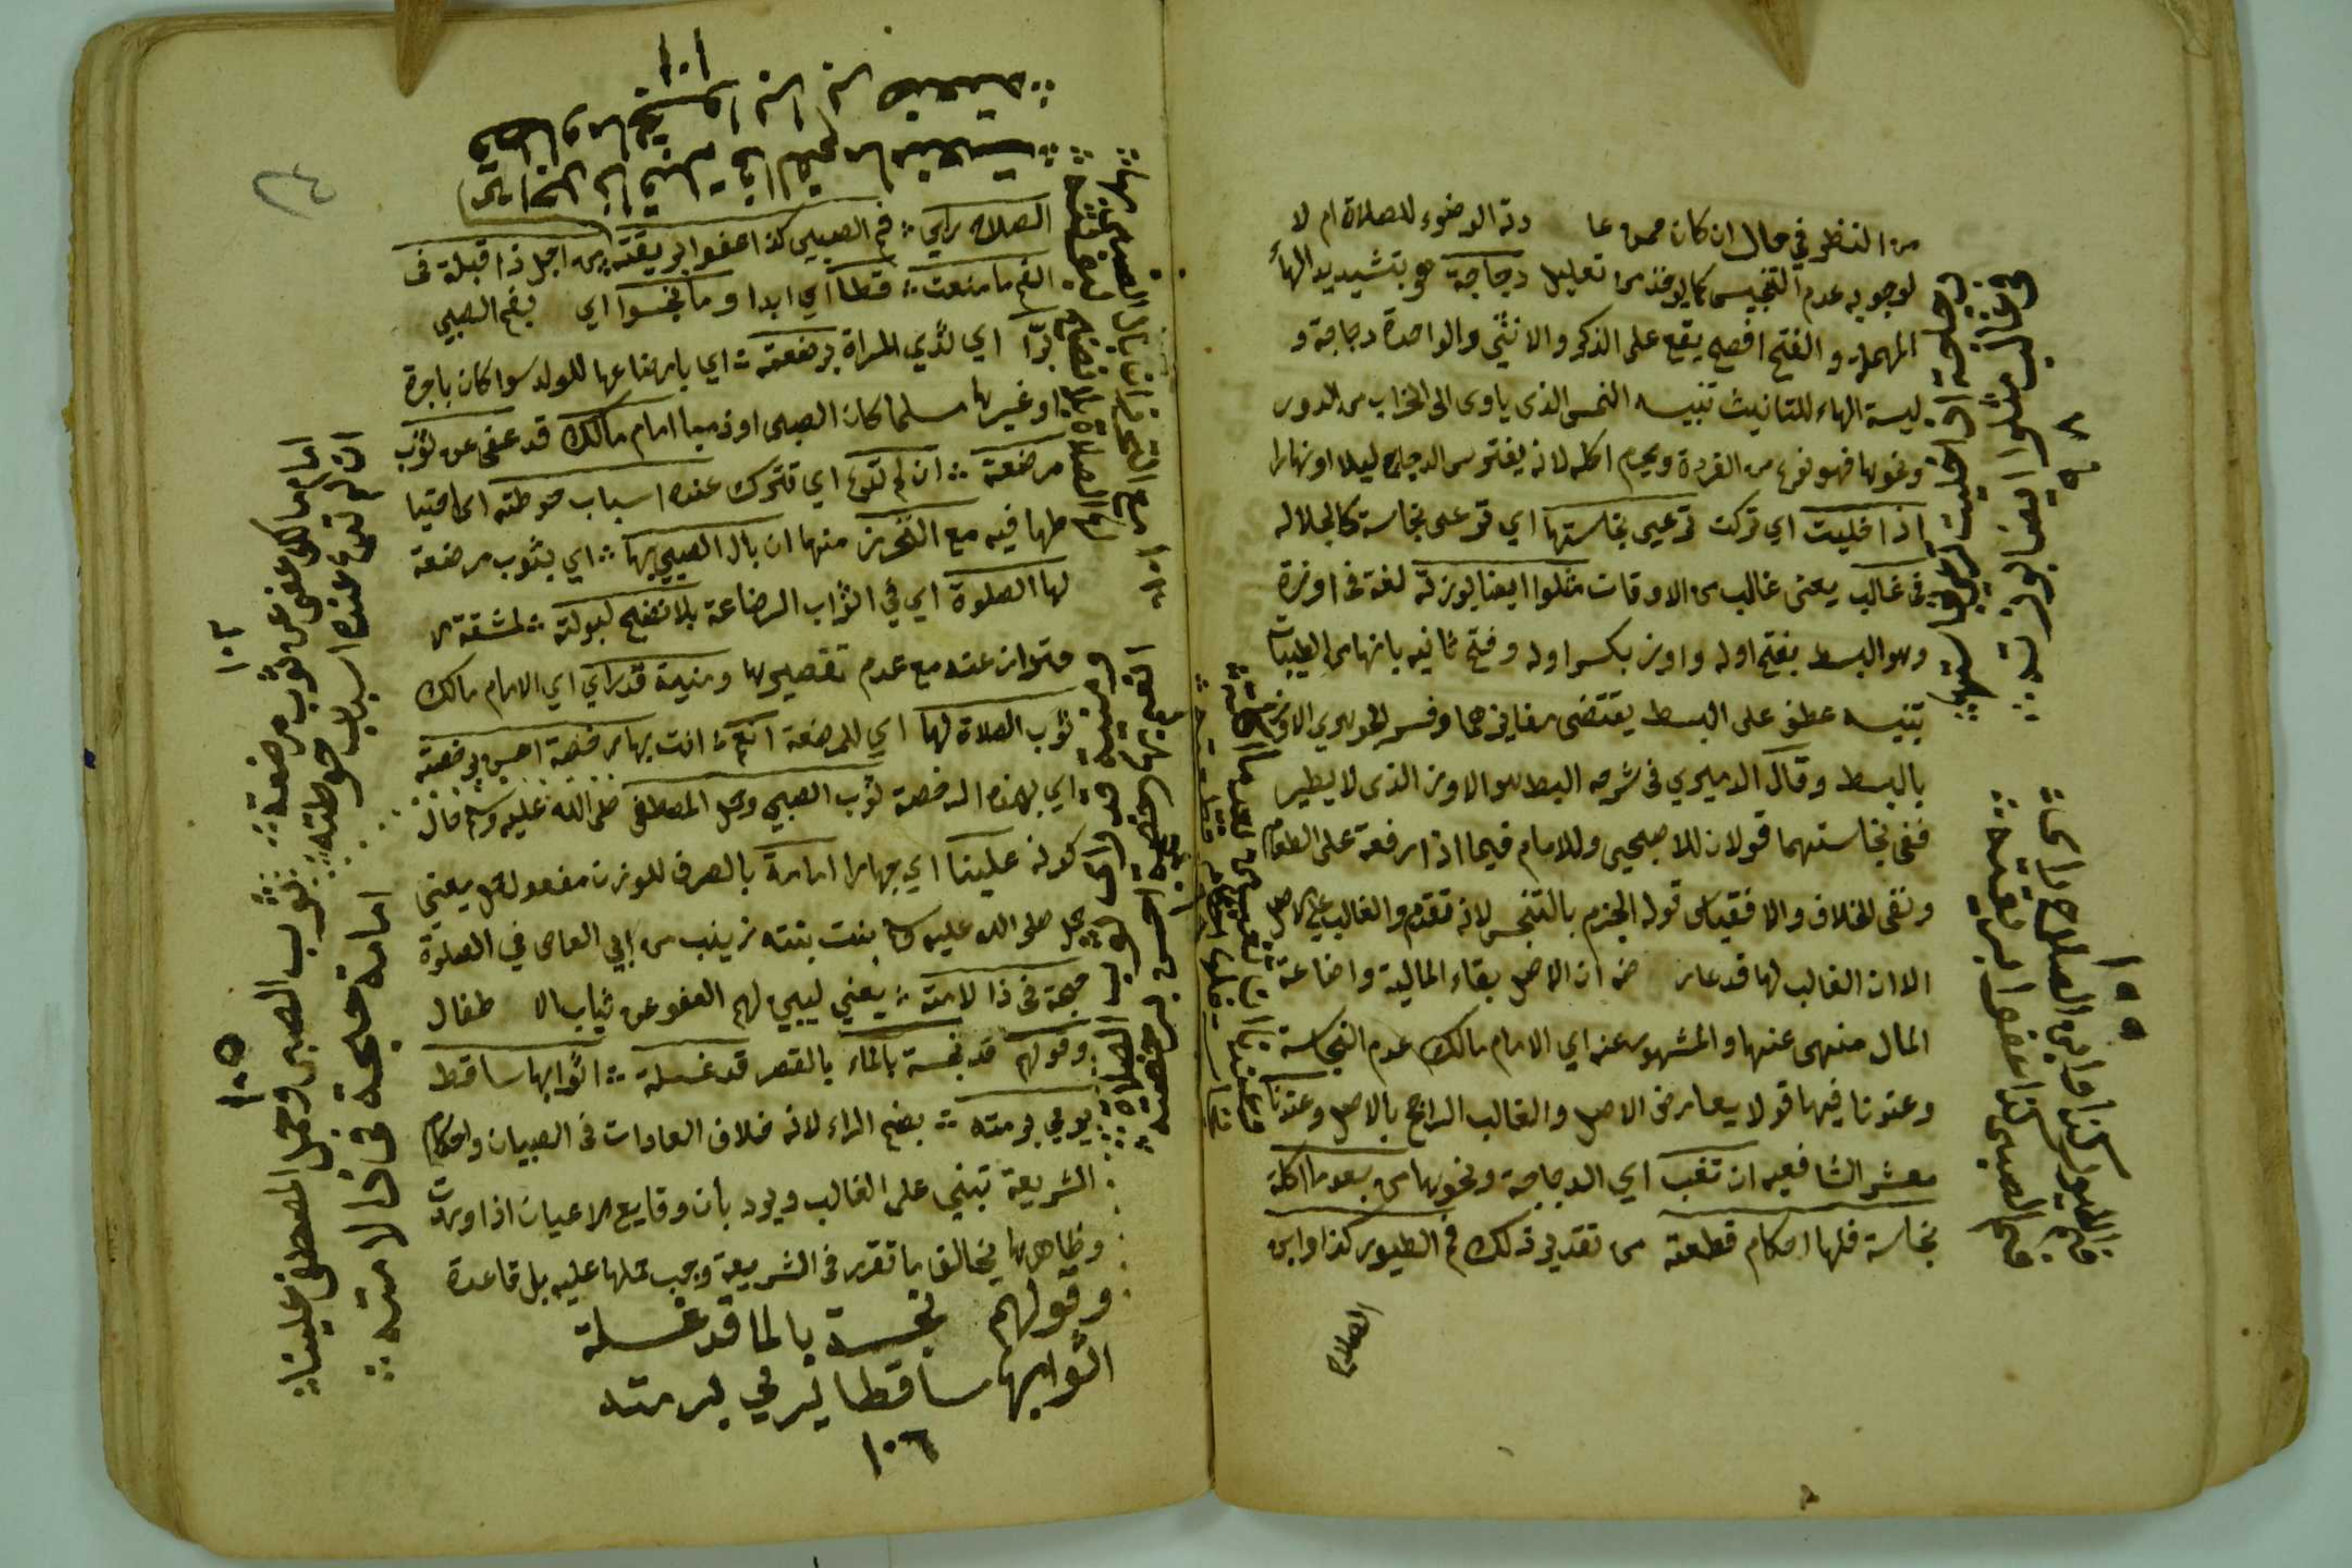 من النظر في حال ان كان دنة الوضوء للصلاة ام لا
لوجوبه عدم التنجيس كما يوخذ من تعليل دجاجة هو بتشديد الها
المهملة و الفتح افصح يقع على الذكر والانثي والواحدة دجاجة و
ليسة الهاء للتانيث تنبيه النمس الذي ياوى الى الخراب من الدور
ونحوها فهو نوع من القردة ويحرم اكله لانه يفترس الدجاج ليلا او نهارا
اذا خليت اي تركت ترعي نجاستها اي ترعى نجاسة كالجلاله
في غالب يعنى غالب من الاوقات مثلوا ايضا بوزة لغة في اوزة
وهو البط بفتح اوله واوز بكسر اوله وفتح ثانيه بانها من الطيبات
تنبيه عطف على البط يقتضى وفسر الجوهري الاوز
بالبط وقال الدميري في شرحه البط هو الاوز الذى لا يطير
ففى نجاستهما قولان للاصحى وللامام فيما اذا رفعة على الطعام
ونفى الخلاف والا فقياس قوله الجزم بالتنجس لانه تقدم والغالب على الاصل
الا ان الغالب لها قد عارضه ان الاصل بقاء المالية واضاعة
المال منهى عنها والمشهور عنه اي الامام مالك عدم النجاسة
وعندنا فيها قولا يعارض الاصل والغالب الراجح بالاصل وعندنا
معشر الشافعيه ان تغب اي الدجاجة ونحوها من بعد ما اكلة
نجاسة فلها احكام قطعته من تقدير ذلك فم الطيور كذا وابن
الصلاح
دجاجة اذا خليت ترعي نجاستها
فى غالب مثلوا ايضا بوزته
٩٨
فم الطيور كذا وابن الصلاح راي
فم الصبي كذا اعفوا لريقته
١٠٠
وعندنا ان تغب من بعد ما اكلت
نجاسة فلها احكام قطعته
قطا وما نجسوا بزا برضعته
من اجل ذا قبلة في الفم ما منعت
١٠١
الصلاه راي فم الصبيى كذا اعفوا لريقته من اجل ذا قبلة فى
الفم ما منعت قطا اي ابدا وما نجسوا اي بفم الصبي
بزا اي لثدي المراة برضعته اي بارضاعها للولد سوا كان باجرة
او غيرها مسلما كان الصبى او ذميا امام مالك قد عفى عن ثوب
مرضعة ان لم تدع اي تترك عنده اسباب حوطته اى احتيا
طها فيه مع التحرز منها ان بال الصبي بها اي بثوب مرضعة
لها الصلوة اي في اثواب الرضاعة بلا نضح لبولته لمشقة الا
حتراز عنه مع عدم تقصيرها ومنية قد راي اي الامام مالك
ثوب الصلاة لها اي للمرضعة انت بها رخصة احسن برخصته
اي بهذه الرخصة ثوب الصبي وحمل المصطفى صلى الله عليه وسلم قال
كونه علينا اي جهارا امامة بالصرف للوزن مفعول حمل يعني
حمل صلى الله عليه وسلم بنت بنته زينب من ابي العاص في الصلوة
حجة في ذا لامته يعني ليبى لهم العفو عن ثياب الا طفال
وقولهم قد نجسة بالماء بالقصر قد غسلة اثوابها ساقط
يرمي برمته بضم الراء لانه خلاف العادات فى الصبيان واحكام
الشريعة تبني على الغالب ويرد بان وقايع الاعيان اذا وردت
وظاهرها يخالف ما تقرر فى الشريعة وجب حملها عليه بل قاعدة
وقولهم نجسة بالما قد غسلة
اثوابها ساقطا يرمي برمته
١٠٦
مع التحرز ان بال الصبى بها
لها الصلاة بلا نضح
١٠٣
ومنية قد راى ثوب الصلاة
رخصة احسن برخصته
امام مالك عفى عن ثوب مرضعة
ان لم تدع عنده اسباب حوطته
١٠٢
ثوب الصبى وحمل المصطفى علينا
امامة حجة فى ذا لامته
١٠٥